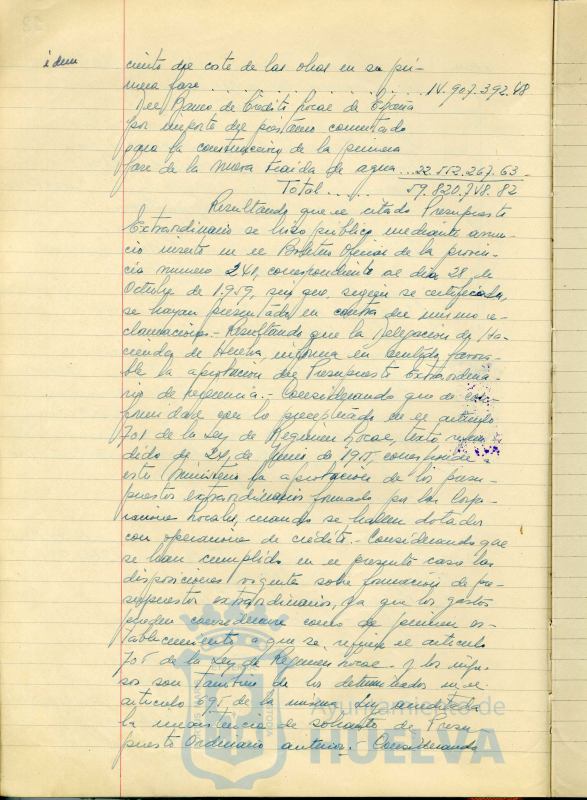 idem
ciento del coste de las obras en su pri-
mera fase . . . . . . . . . . . . . 14.907.392.48
Del Banco de Crédito Local de España
por importe del postamo concertado
para la construcción de la primera
fase de la nueva traida de agua ... 22.552.267.63
Total ..... 59.820.748.82
Resultando que el citado Presupuesto
Extraordinario se hizo público mediante anun-
cio inserto en el Boletin Oficial de la provin-
cia numero 241, correspondiente al dia 28 de
Octubre de 1.959, sin que, según se certifica,
se hayan presentado en contra del mismo re-
clamaciones.- Resultando que la Delegación de Ha-
cienda de Huelva informa en sentido favora-
ble la aprobación del Presupuesto Extraordina-
rio de referencia.- Considerando que de
con lo preceptuado en el articulo
701 de la Ley de Regimen Local, texto refun-
dido de 24 de Junio de 1955 corresponde
este Ministerio la aprobación de los presu-
puestos extraordinarios formados por las Corpo-
raciones Locales, cuando se hallen dotados
con operaciones de crédito.- Considerando que
se han cumplido en el presente caso las
disposiciones vigentes sobre formación de pre-
supuestos extraordinarios, ya que los gastos
pueden considerarse como de primer es-
tablecimiento a que se refiere el articulo
705 de la Ley de Regimen Local y los ingre-
sos son tambien de los determinados en el
articulo 695 de la misma Ley acreditada
la inexistencia de sobrante de Presu-
puesto Ordinario anterior.- Considerando
Ayuntamiento de
HUELVA